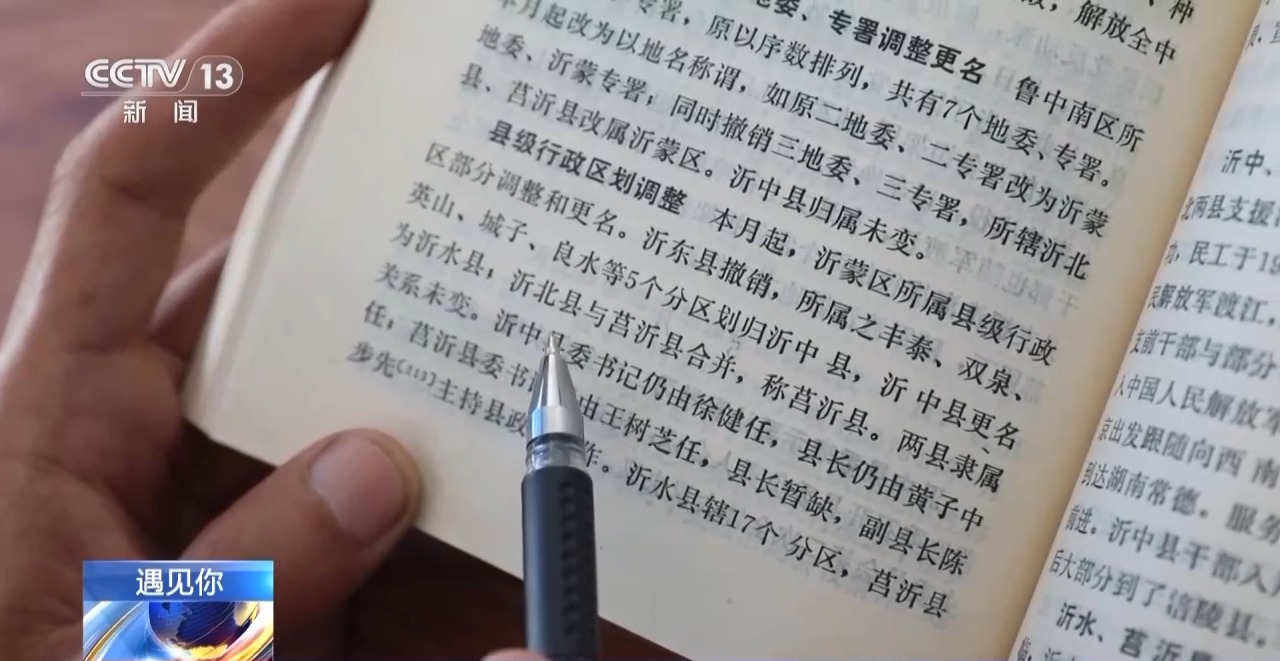 CCTV 13
新闻
种
解放全中
地委、专署调整更名 鲁中南区所
专署，原以序数排列，共有7个地委、专署。
本月起改为以地名称谓，如原二地委、二专署改为沂蒙
地委、沂蒙专署；同时撤销三地委、三专署，所辖沂北
县、莒沂县改属沂蒙区。沂中县归属未变。
县级行政区划调整 本月起，沂蒙区所属县级行政
区部分调整和更名。沂东县撤销，所属之丰泰、双泉、
英山、城子、良水等5个分区划归沂中县，沂中县更名
为沂水县；沂北县与莒沂县合并，称莒沂县。两县隶属
关系未变。沂中县委书记仍由徐健任，县长仍由黄子中
任；莒沂县委书 由王树芝任，县长暂缺，副县长陈
步先 主持县政 作。沂水县辖17个分区，莒沂县
沂中、
北两县支援
功，民工于19
民解放军渡江，
支前干部与部分
入中国人民解放军
京出发跟随向西南
到达湖南常德。服务
前进。沂中县干部入
后大部分到了涪陵县。
沂水、莒沂
遇见你